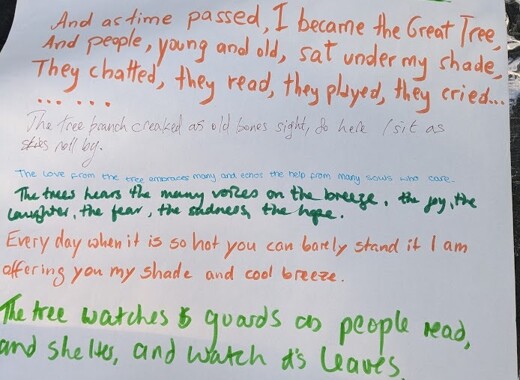 And as time passed, I became the Great Tree,
And people, young and old, sat under my shade,
They chatted, they read, they played, they cried...
... ...
The tree branch creaked as old bones sight, So here I sit as
roll by.
The Love from the tree embraces many and echos the help from many souls who care.
The trees hears the many voices on the breeze, the joy, the
laughter, the fear, the sadness, the hope.
Every day when it is so hot you can barely stand it I am
offering you my shade and cool breeze.
The tree watches & guards as people read,
and shelter, and watch it's leaves.